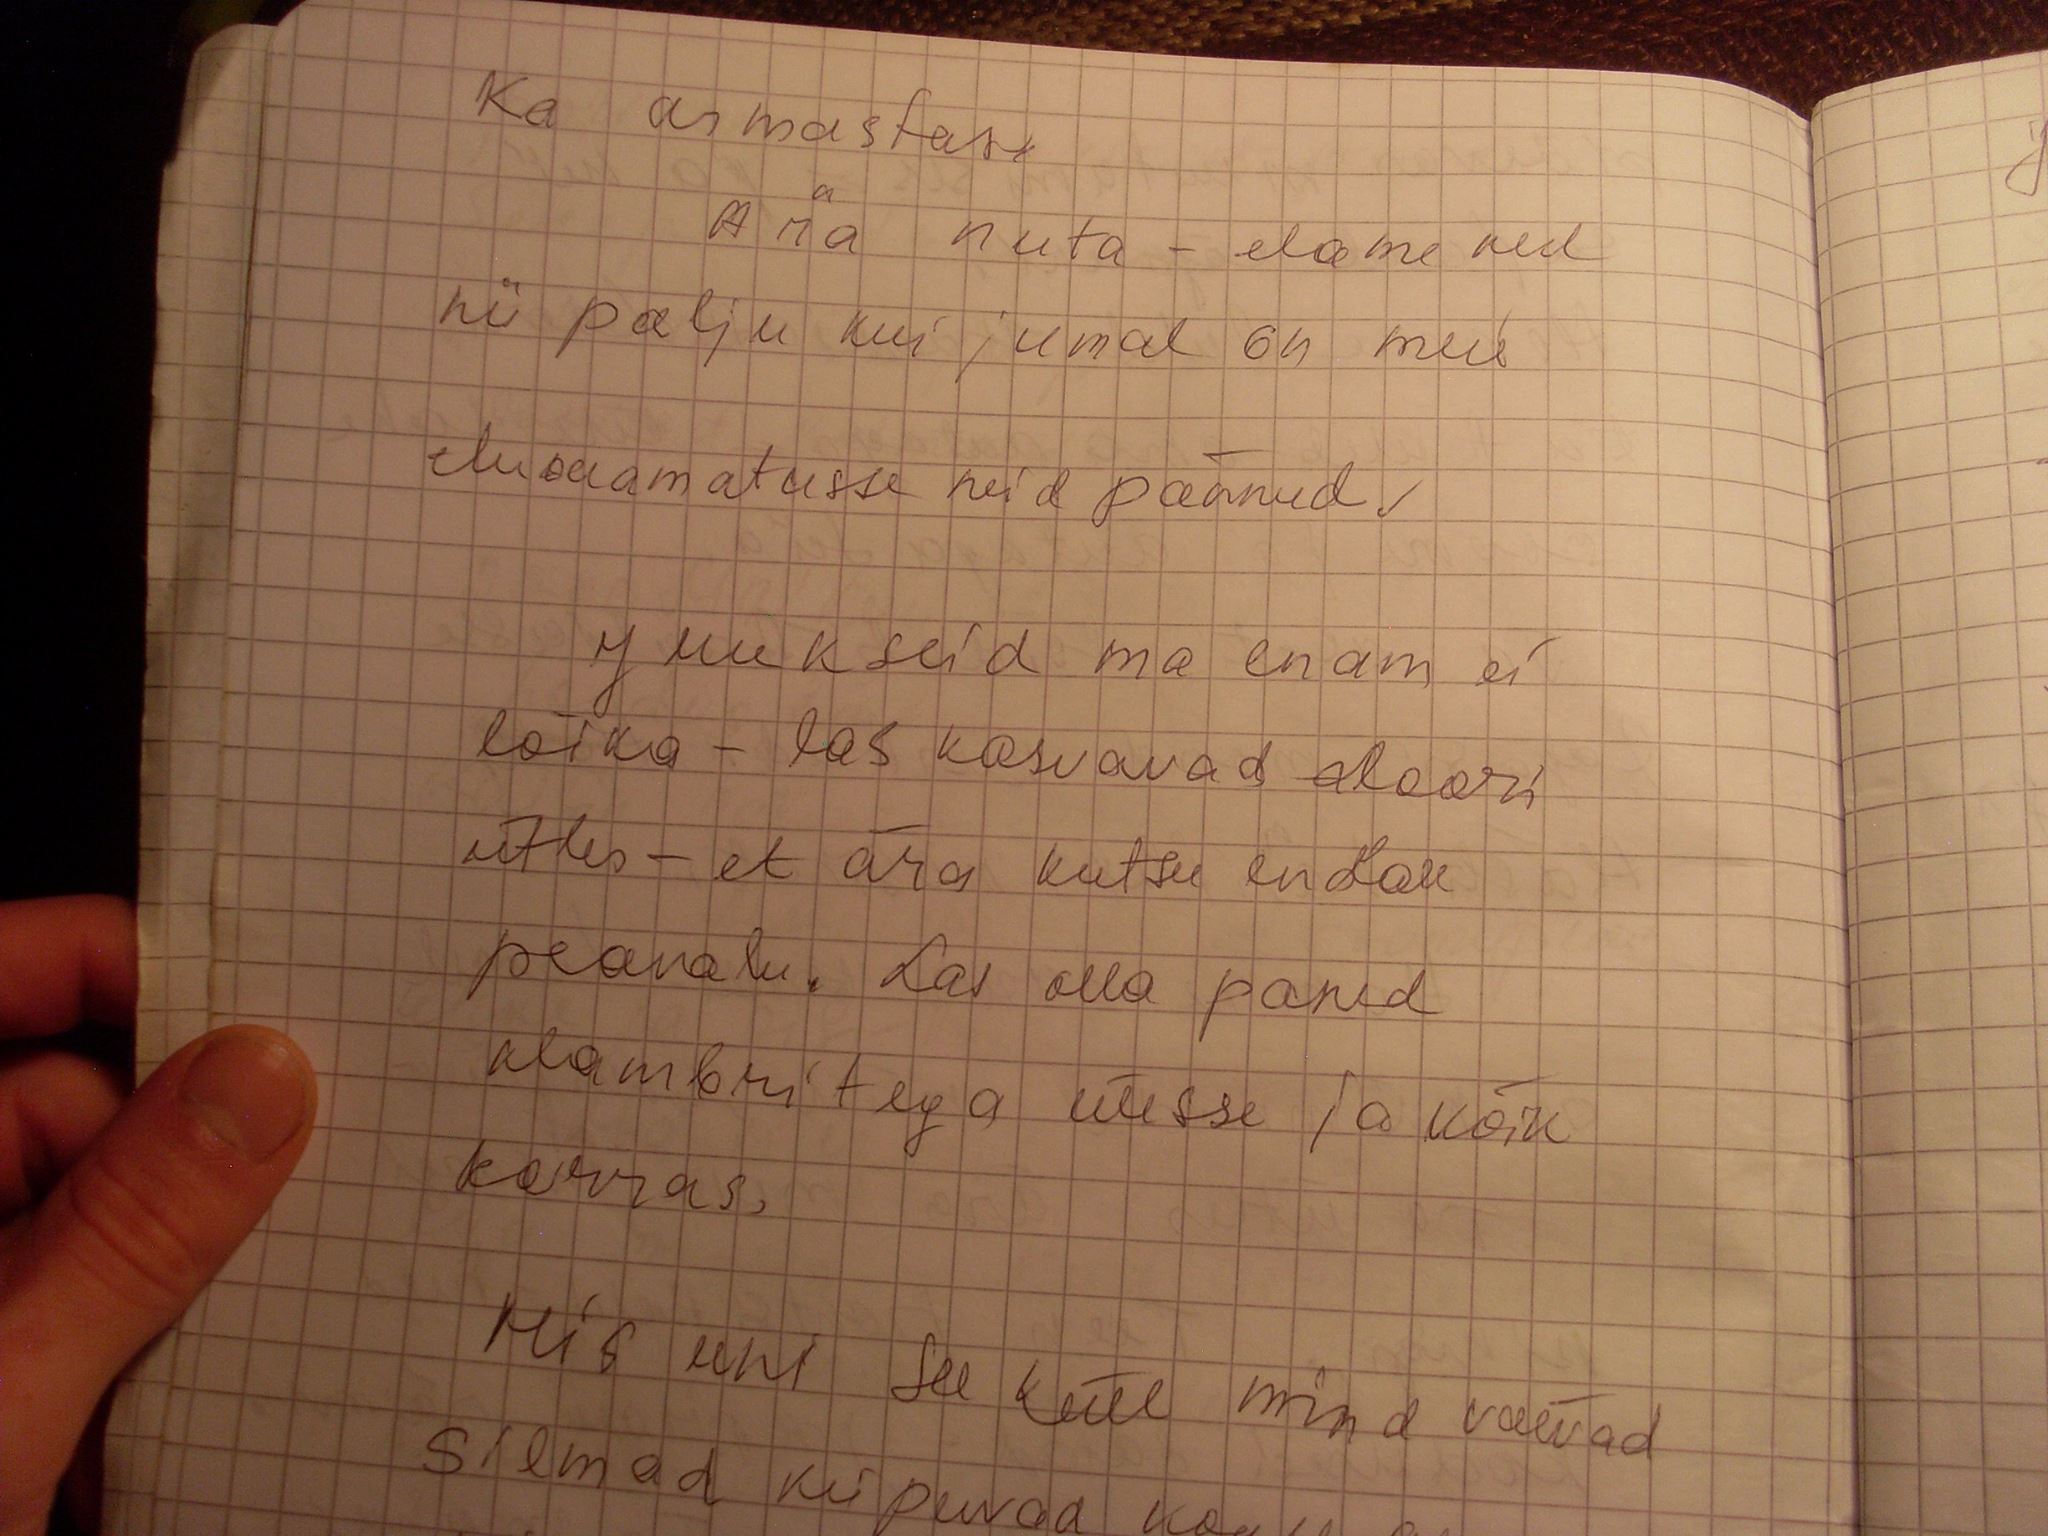 Ka armastase
Ära nuta - elame veel
nii palju kui jumal on meie
eluraamatusse neid päänud.
y uukseid ma enam ei
lõika - las kasvavad doori
ütles - et ära kutsu endale
peavalu. Las olla paned
klambritega üüesse ja kõik
korras.
Mis uni see küll mind vaevad
Silmad kipuvad